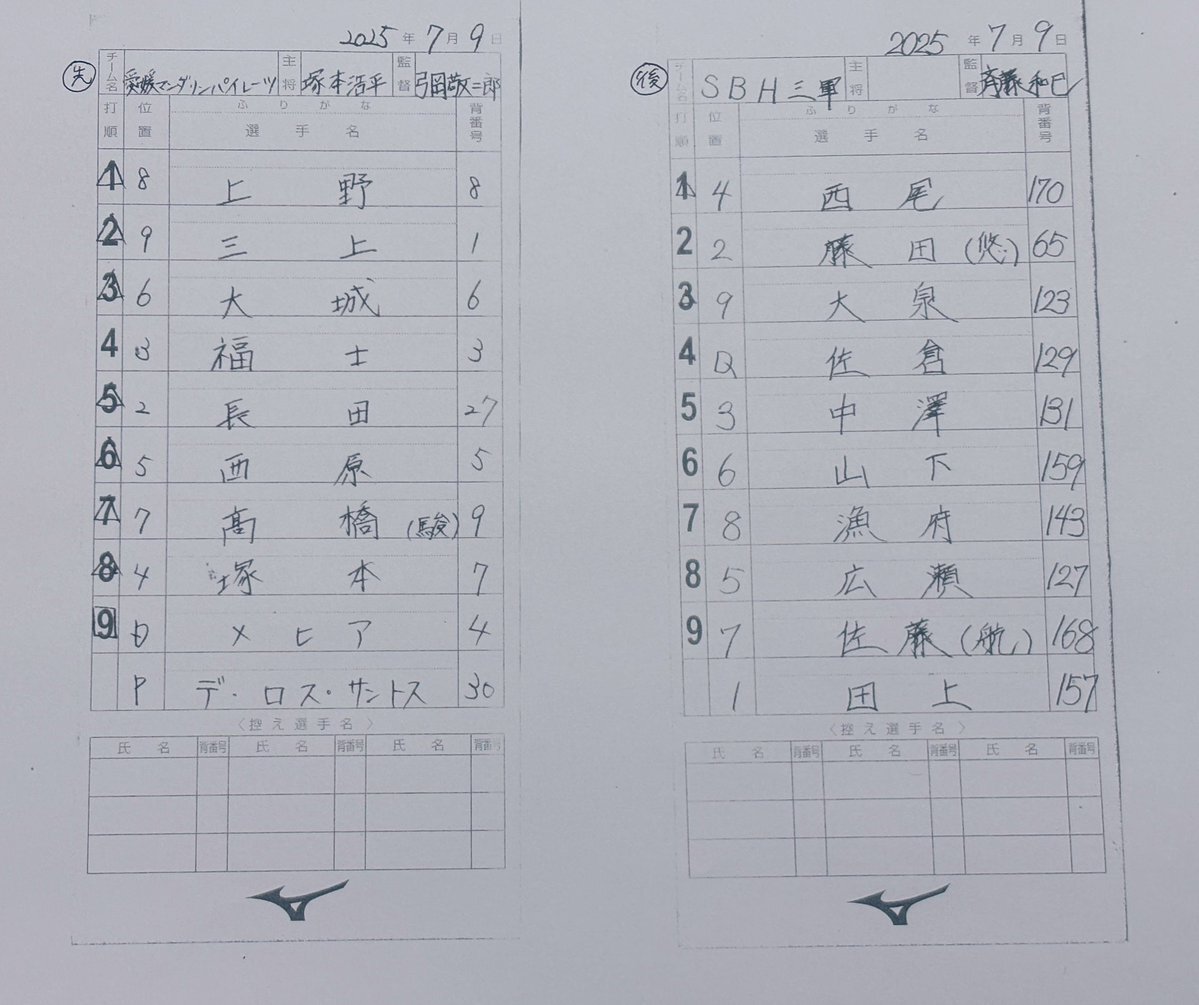 2025 年 7 月 9 日
先 チーム名 愛媛マンダリンパイレーツ 主将 塚本浩平 監督 弓岡敬二郎
打順 位置 ふりがな 選手名 背番号
1 8 上野 8
2 9 三上 1
3 6 大城 6
4 3 福士 3
5 2 長田 27
6 5 西原 5
7 7 髙橋(駿) 9
8 4 塚本 7
9 D メヒア 4
P デ・ロス・サントス 30
〈控え選手名〉
氏名 背番号 氏名 背番号 氏名 背番号
2025 年 7 月 9 日
後 チーム名 SBH三軍 主将 監督 斉藤和巳
打順 位置 ふりがな 選手名 背番号
1 4 西尾 170
2 2 藤田(悠) 65
3 9 大泉 123
4 D 佐倉 129
5 3 中澤 131
6 6 山下 159
7 8 漁府 143
8 5 広瀬 127
9 7 佐藤(航) 168
1 田上 157
〈控え選手名〉
氏名 背番号 氏名 背番号 氏名 背番号